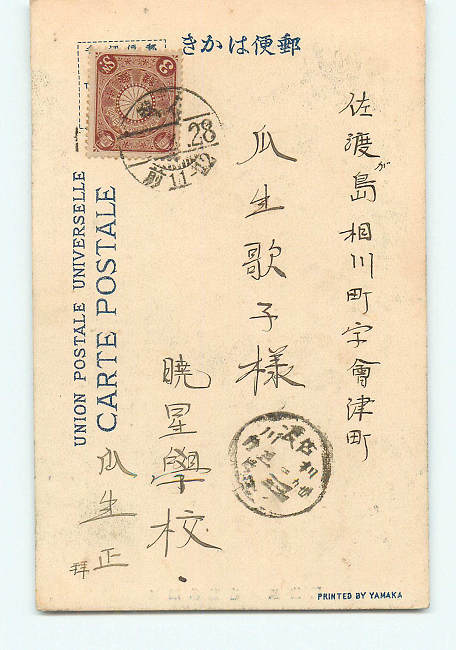 郵便はかき
佐渡が島相川町字會津町
瓜生歌子様
暁星學校
瓜生正
拜
UNION POSTALE UNIVERSELLE
CARTE POSTALE
28
前11-12
PRINTED BY YAMAKA